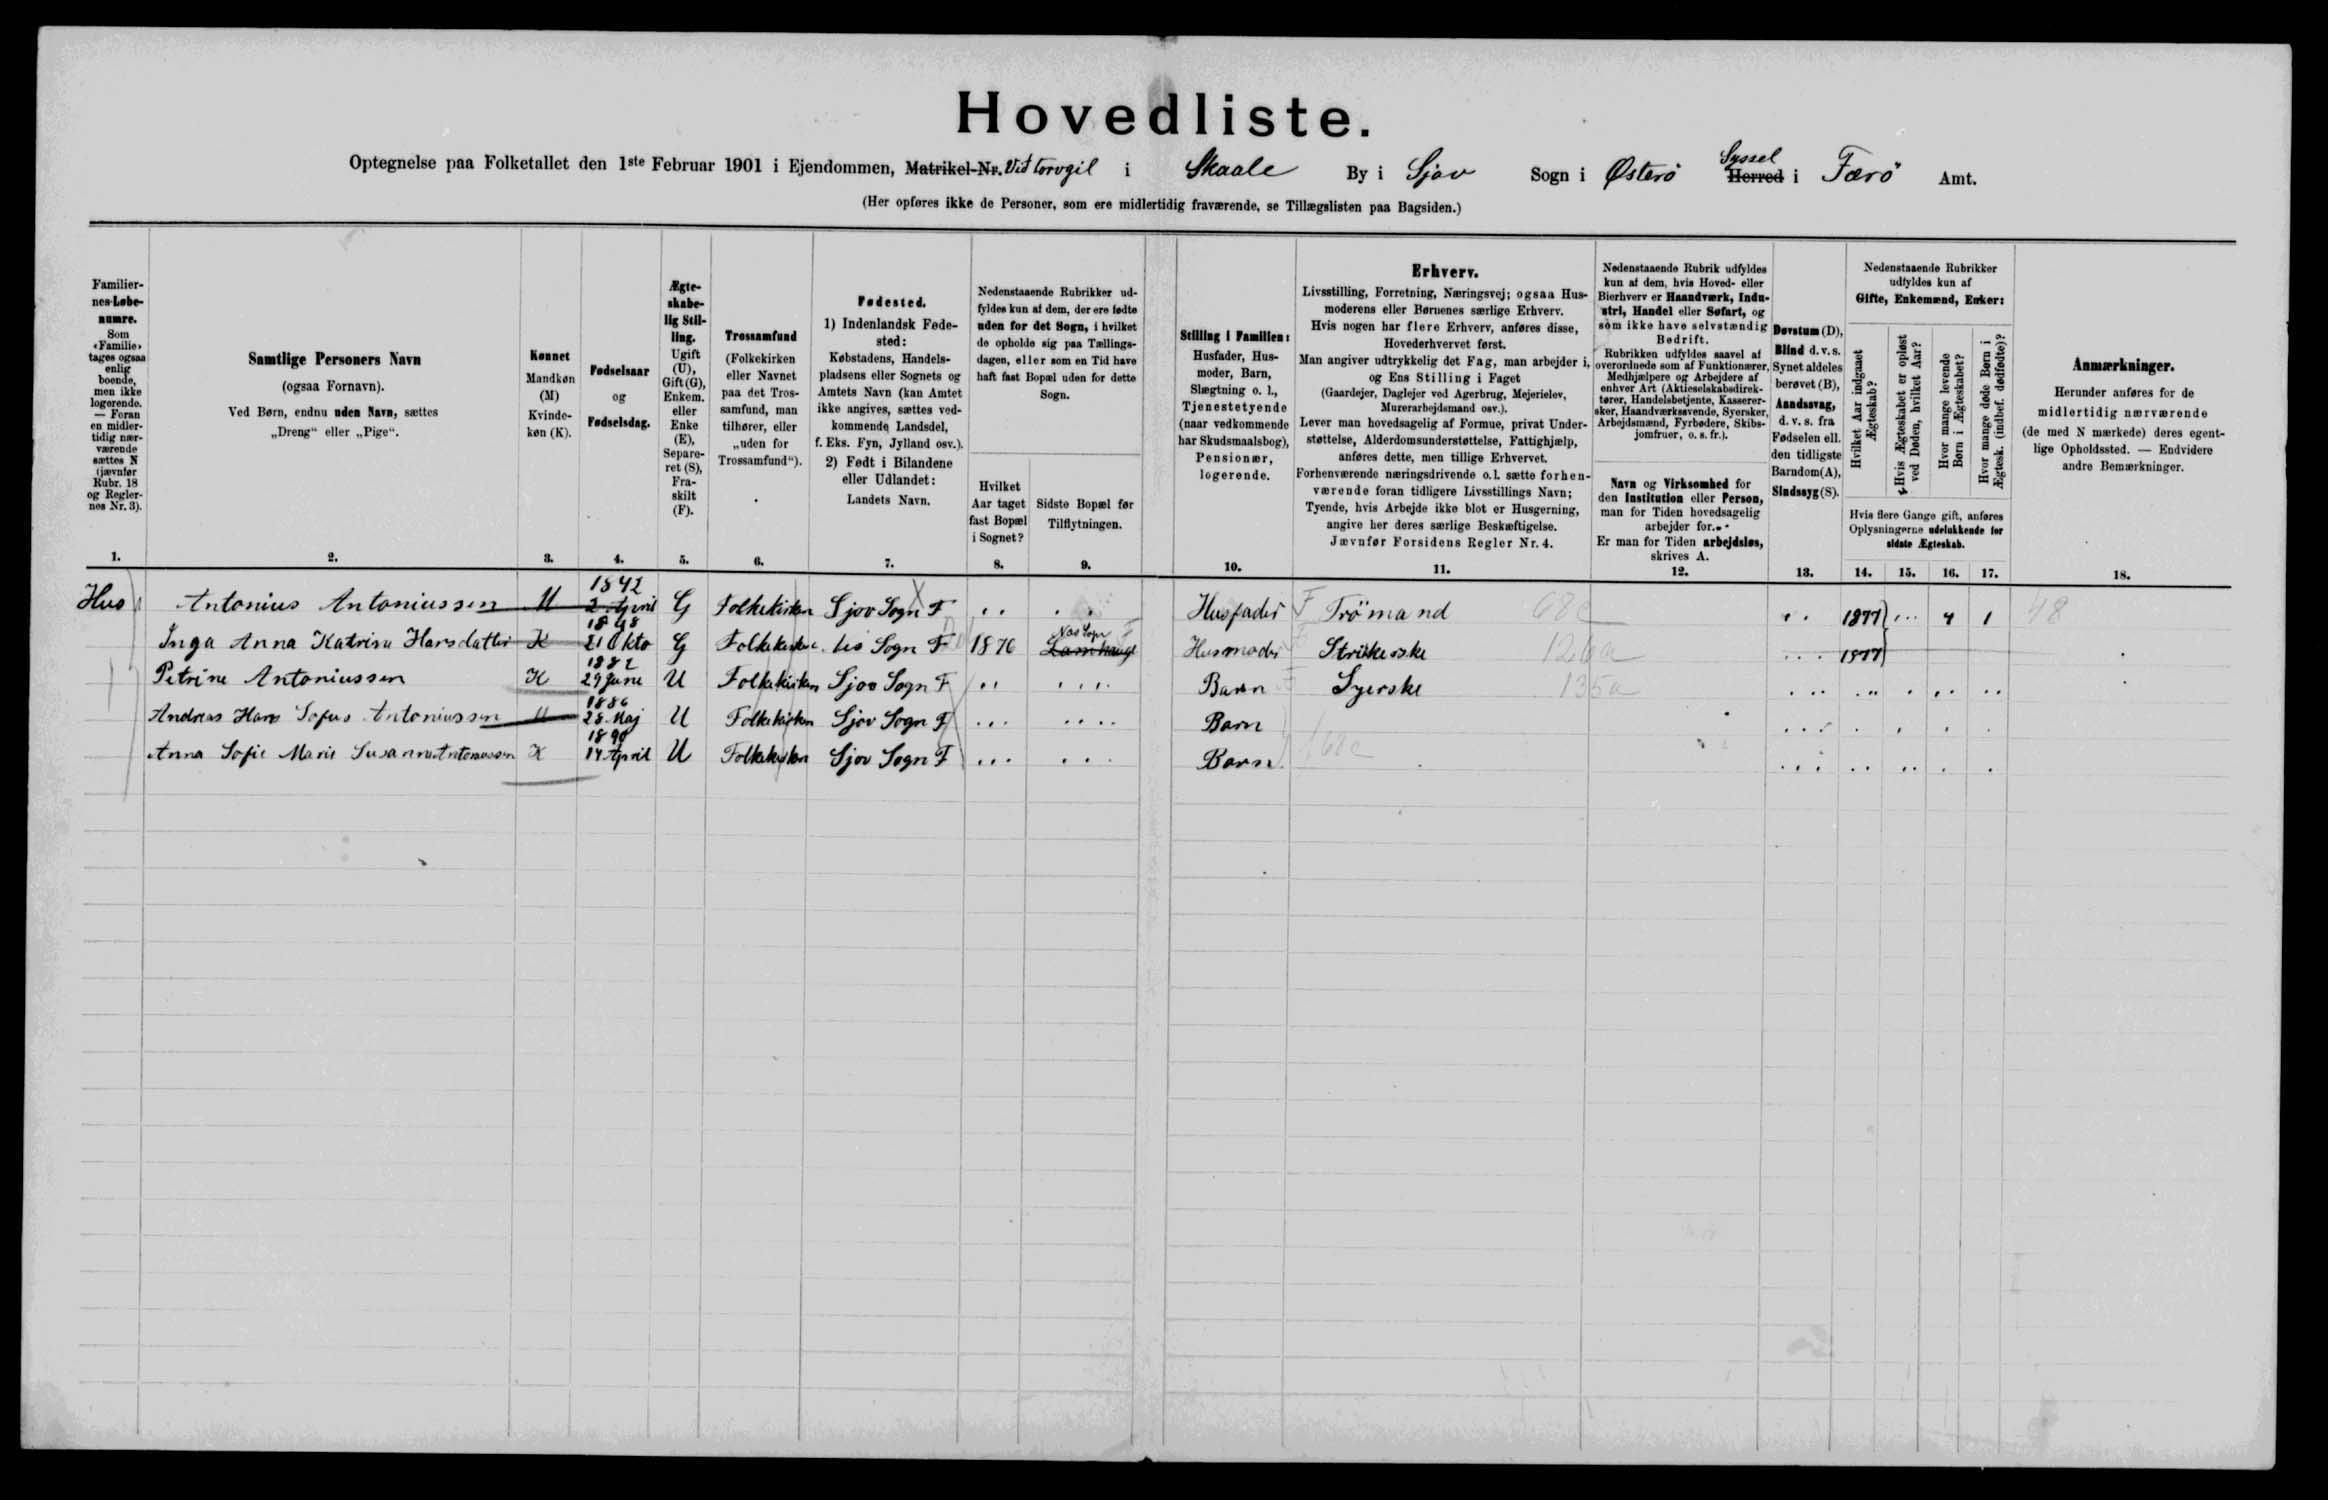 Hovedliste.
Optegnelse paa Folketallet den 1ste Februar 1901 i Ejendommen, Matrikel-Nr. Vid torvgil i Skaale By i Sjov Sogn i Østerö Syssel Herred i Færö Amt.
(Her opføres ikke de Personer, som ere midlertidig fraværende, se Tillægslisten paa Bagsiden.)
Familiernes Løbenumre.
Som «Familie» tages ogsaa enlig boende, men ikke logerende. — Foran en midlertidig nærværende sættes N (jævnfør Rubr. 18 og Reglernes Nr. 3).
1.
Samtlige Personers Navn
(ogsaa Fornavn).
Ved Børn, endnu uden Navn, sættes
„Dreng“ eller „Pige“.
2.
Kønnet
Mandkøn (M)
Kvindekøn (K).
3.
Fødselsaar
og
Fødselsdag.
4.
Ægteskabelig Stilling.
Ugift (U), Gift (G), Enkem. eller Enke (E), Separeret (S), Fraskilt (F).
5.
Trossamfund
(Folkekirken eller Navnet paa det Trossamfund, man tilhører, eller „uden for Trossamfund“).
6.
Fødested.
1) Indenlandsk Fødested:
Købstadens, Handelspladsens eller Sognets og Amtets Navn (kan Amtet ikke angives, sættes vedkommende Landsdel, f. Eks. Fyn, Jylland osv.).
2) Født i Bilandene eller Udlandet:
Landets Navn.
7.
Nedenstaaende Rubrikker udfyldes kun af dem, der ere fødte uden for det Sogn, i hvilket de opholde sig paa Tællingsdagen, eller som en Tid have haft fast Bopæl uden for dette Sogn.
Hvilket Aar taget fast Bopæl i Sognet?
8.
Sidste Bopæl før Tilflytningen.
9.
Stilling i Familien:
Husfader, Husmoder, Barn, Slægtning o. l., Tjenestetyende (naar vedkommende har Skudsmaalsbog), Pensionær, logerende.
10.
Erhverv.
Livsstilling, Forretning, Næringsvej; ogsaa Husmoderens eller Børnenes særlige Erhverv.
Hvis nogen har flere Erhverv, anføres disse, Hovederhvervet først.
Man angiver udtrykkelig det Fag, man arbejder i, og Ens Stilling i Faget
(Gaardejer, Daglejer ved Agerbrug, Mejerielev, Murerarbejdsmand osv.).
Lever man hovedsagelig af Formue, privat Understøttelse, Alderdomsunderstøttelse, Fattighjælp, anføres dette, men tillige Erhvervet.
Forhenværende næringsdrivende o. l. sætte forhenværende foran tidligere Livsstillings Navn;
Tyende, hvis Arbejde ikke blot er Husgerning, angive her deres særlige Beskæftigelse.
Jævnfør Forsidens Regler Nr. 4.
11.
Nedenstaaende Rubrik udfyldes kun af dem, hvis Hoved- eller Bierhverv er Haandværk, Industri, Handel eller Søfart, og som ikke have selvstændig Bedrift.
Rubrikken udfyldes saavel af overordnede som af Funktionærer, Medhjælpere og Arbejdere af enhver Art (Aktieselskabsdirektører, Handelsbetjente, Kasserersker, Haandværkssvende, Syersker, Arbejdsmænd, Fyrbødere, Skibsjomfruer, o. s. fr.).
Navn og Virksomhed for den Institution eller Person, man for Tiden hovedsagelig arbejder for.
Er man for Tiden arbejdsløs, skrives A.
12.
Døvstum (D), Blind d. v. s. Synet aldeles berøvet (B), Aandssvag, d. v. s. fra Fødselen ell. den tidligste Barndom (A), Sindssyg (S).
13.
Nedenstaaende Rubrikker udfyldes kun af
Gifte, Enkemænd, Enker:
Hvilket Aar indgaaet Ægteskab?
Hvis Ægteskabet er opløst ved Døden, hvilket Aar?
Hvor mange levende Børn i Ægteskabet?
Hvor mange døde Børn i Ægtesk. (indbef. dødfødte)?
Hvis flere Gange gift, anføres Oplysningerne udelukkende for sidste Ægteskab.
14. 15. 16. 17.
Anmærkninger.
Herunder anføres for de midlertidig nærværende (de med N mærkede) deres egentlige Opholdssted. — Endvidere andre Bemærkninger.
18.
Hus Antonius Antoniussen M 1842 2 April G Folkekirken Sjov Sogn F Husfader F Trömand 68c 1877 4 1 48
Inga Anna Katrina Hansdatter K 1848 21 Okto G Folkekirken Sogn F 1876 Næs Sogn Lamhauge Husmoder Strikkerske 126a 1877
Petrine Antoniussen K 1882 29 June U Folkekirken Sjov Sogn F Barn Syerske 135a
Andreas Hans Sofus Antoniussen M 1886 28 Maj U Folkekirken Sjov Sogn F Barn
Anna Sofie Marie Susanna Antoniussen K 1890 14 April U Folkekirken Sjov Sogn F Barn 168c